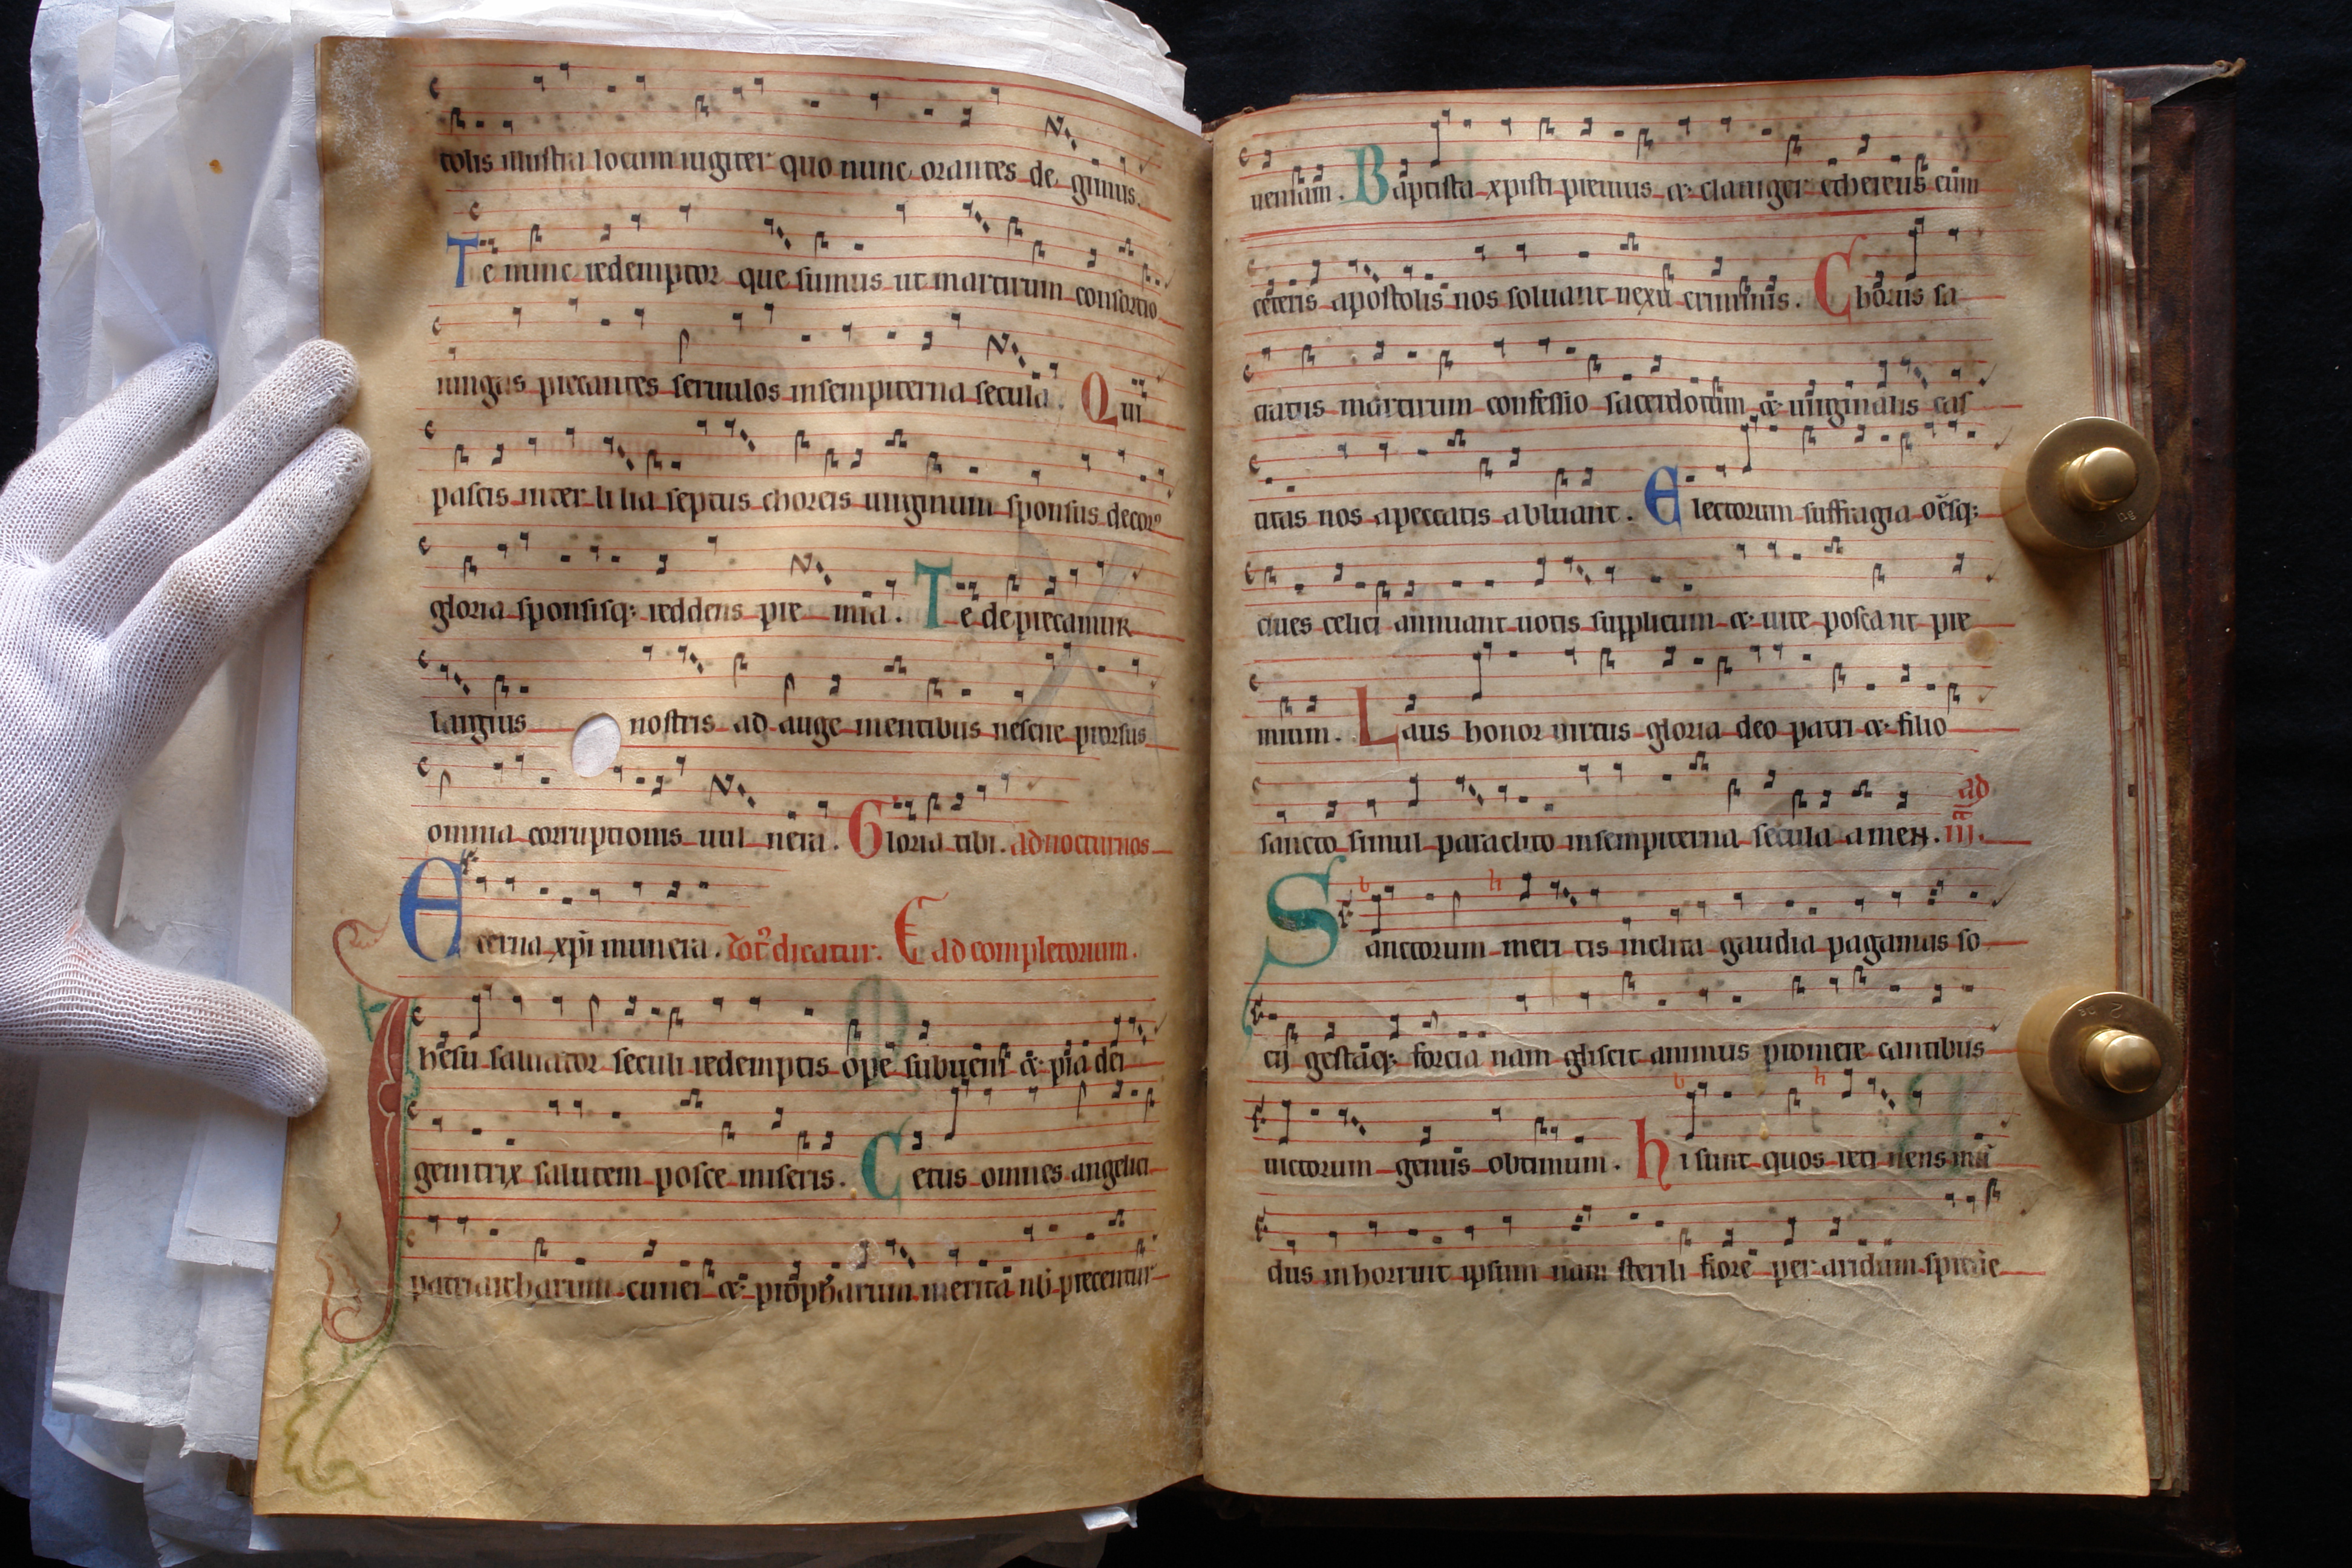 tolis illustra locum iugiter quo nunc orantes de gimus.
Te nunc redemptor que sumus ut martirum consortio
iungas precantes seruulos insempiterna secula. Qui
pascis inter lilia septus choreis uirginum sponsus decorꝰ
gloria sponsisq; reddens pre mia. Te deprecamur
largius nostris ad auge mentibus nescire prorsus
omnia corruptionis uul nera. Gloria tibi. ad nocturnos
Eterna xpi munera. dicatur. ad completorium.
Ihesu saluator seculi redemptis ope subueni & pia dei
genitrix salutem posce miseris. Cetus omnes angelici
patriarcharum cunei & propharum merita nobis precentur
ueniam. Baptista xpisti preuius & clauiger ethereus cum
ceteris apostolis nos soluant nexu criminis. Chorus sa
cratus martirum confessio sacerdotum & uirginalis cas
titas nos apeccatis abluant. Electorum suffragia oēsq;
ciues celici annuant uotis supplicum & uite poscant pre
mium. Laus honor uirtus gloria deo patri & filio
sancto simul paraclito insempiterna secula amen. ad
iij.
Sanctorum meri tis inclita gaudia pagamus so
cij gestaq; forcia nam gliscit animus promere cantibus
uictorum genus obtimum. hi sunt quos reti nens mū
dus inhorruit ipsum nam sterili flore per aridum spreue